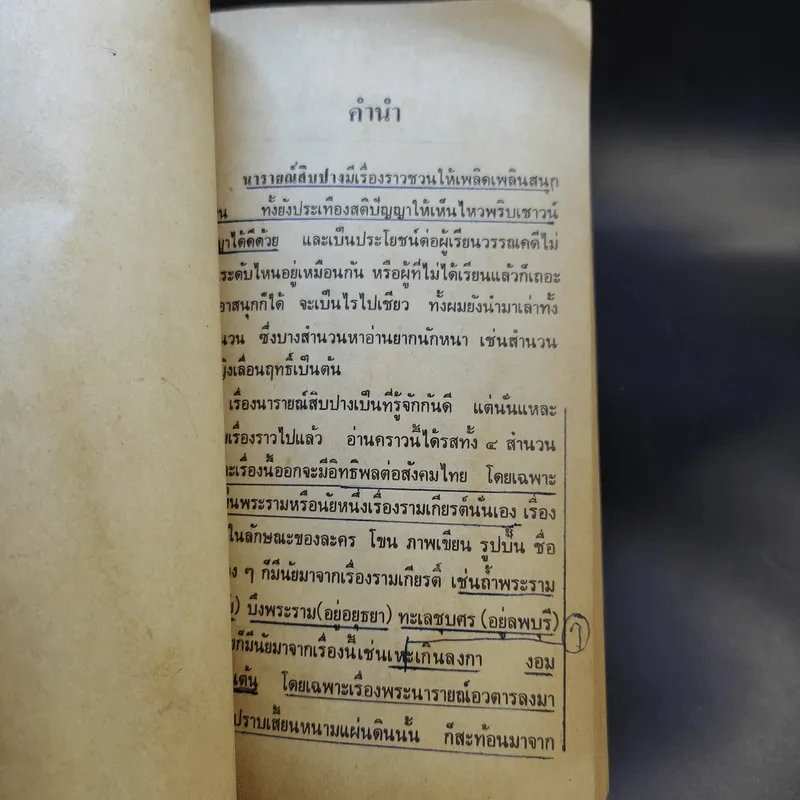 คำนำ
นารายณ์สิบปางมีเรื่องราวชวนให้เพลิดเพลินสนุก
ทั้งยังประเทืองสติปัญญาให้เห็นไหวพริบเชาวน์
ได้ดีด้วย และเป็นประโยชน์ต่อผู้เรียนวรรณคดีไม่
ระดับไหนอยู่เหมือนกัน หรือผู้ที่ไม่ได้เรียนแล้วก็เถอะ
สนุกก็ได้ จะเป็นไรไปเชียว ทั้งผมยังนำมาเล่าทั้ง
ซึ่งบางสำนวนหาอ่านยากนักหนา เช่นสำนวน
เลื่อนฤทธิ์เป็นต้น
เรื่องนารายณ์สิบปางเป็นที่รู้จักกันดี แต่นั่นแหละ
เรื่องราวไปแล้ว อ่านคราวนี้ได้รสทั้ง ๔ สำนวน
เรื่องนี้ออกจะมีอิทธิพลต่อสังคมไทย โดยเฉพาะ
พระรามหรือนัยหนึ่งเรื่องรามเกียรติ์นั่นเอง เรื่อง
ในลักษณะของละคร โขน ภาพเขียน รูปปั้น ชื่อ
ๆ ก็มีนัยมาจากเรื่องรามเกียรติ์ เช่นถ้ำพระราม
บึงพระราม(อยู่อยุธยา) ทะเลชุบศร (อยู่ลพบุรี)
ก็มีนัยมาจากเรื่องนี้เช่นเหาะเกินลงกา งอม
โดยเฉพาะเรื่องพระนารายณ์อวตารลงมา
ปราบเสี้ยนหนามแผ่นดินนั้น ก็สะท้อนมาจาก